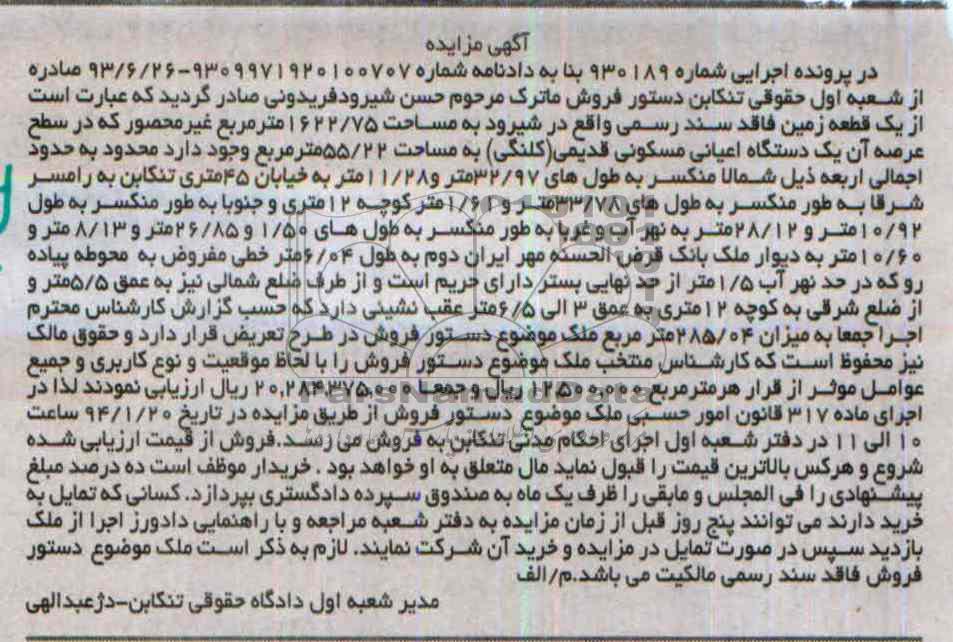 آگهی مزایده
در پرونده اجرایی شماره ۹۳۰۱۸۹ بنا به دادنامه شماره ۹۳۰۹۹۷۱۹۲۰۱۰۰۷۰۷-۹۳/۶/۲۶ صادره
از شعبه اول حقوقی تنکابن دستور فروش ماترک مرحوم حسن شیرودفریدونی صادر گردید که عبارت است
از یک قطعه زمین فاقد سند رسمی واقع در شیرود به مساحت ۱۶۲۲/۷۵ مترمربع غیرمحصور که در سطح
عرصه آن یک دستگاه اعیانی مسکونی قدیمی(کلنگی) به مساحت ۵۵/۲۲مترمربع وجود دارد محدود به حدود
اجمالی اربعه ذیل شمالا منکسر به طول های ۳۲/۹۷متر و۱۱/۲۸ متر به خیابان ۴۵متری تنکابن به رامسر
شرقا به طور منکسر به طول های ۳۳/۷۸متر و ۱/۶۱متر کوچه ۱۲متری و جنوبا به طور منکسر به طول
۱۰/۹۲متر و ۲۸/۱۲متر به نهر آب و غربا به طور منکسر به طول های ۱/۵۰ و ۲۶/۸۵متر و ۸/۱۳ متر و
۱۰/۶۰متر به دیوار ملک بانک قرض الحسنه مهر ایران دوم به طول ۶/۰۴متر خطی مفروض به محوطه پیاده
رو که در حد نهر آب ۱/۵متر از حد نهایی بستر دارای حریم است و از طرف ضلع شمالی نیز به عمق ۵/۵متر و
از ضلع شرقی به کوچه ۱۲متری به عمق ۳ الی ۶/۵متر عقب نشینی دارد که حسب گزارش کارشناس محترم
اجرا جمعا به میزان ۲۸۵/۰۴متر مربع ملک موضوع دستور فروش در طرح تعریض قرار دارد و حقوق مالک
نیز محفوظ است که کارشناس منتخب ملک موضوع دستور فروش را با لحاظ موقعیت و نوع کاربری و جمیع
عوامل موثر از قرار هرمترمربع ۱۲۵۰۰،۰۰۰ ریال و جمعا ۲۰،۲۸۴۳۷۵،۰۰۰ ریال ارزیابی نمودند لذا در
اجرای ماده ۳۱۷ قانون امور حسبی ملک موضوع دستور فروش از طریق مزایده در تاریخ ۹۴/۱/۲۰ ساعت
۱۰ الی ۱۱ در دفتر شعبه اول اجرای احکام مدنی تنکابن به فروش می رسد.فروش از قیمت ارزیابی شده
شروع و هرکس بالاترین قیمت را قبول نماید مال متعلق به او خواهد بود . خریدار موظف است ده درصد مبلغ
پیشنهادی را فی المجلس و مابقی را ظرف یک ماه به صندوق سپرده دادگستری بپردازد. کسانی که تمایل به
خرید دارند می توانند پنج روز قبل از زمان مزایده به دفتر شعبه مراجعه و با راهنمایی دادورز اجرا از ملک
بازدید سپس در صورت تمایل در مزایده و خرید آن شرکت نمایند. لازم به ذکر است ملک موضوع دستور
فروش فاقد سند رسمی مالکیت می باشد.م/الف
مدیر شعبه اول دادگاه حقوقی تنکابن-دژعبدالهی
ParsNamadData